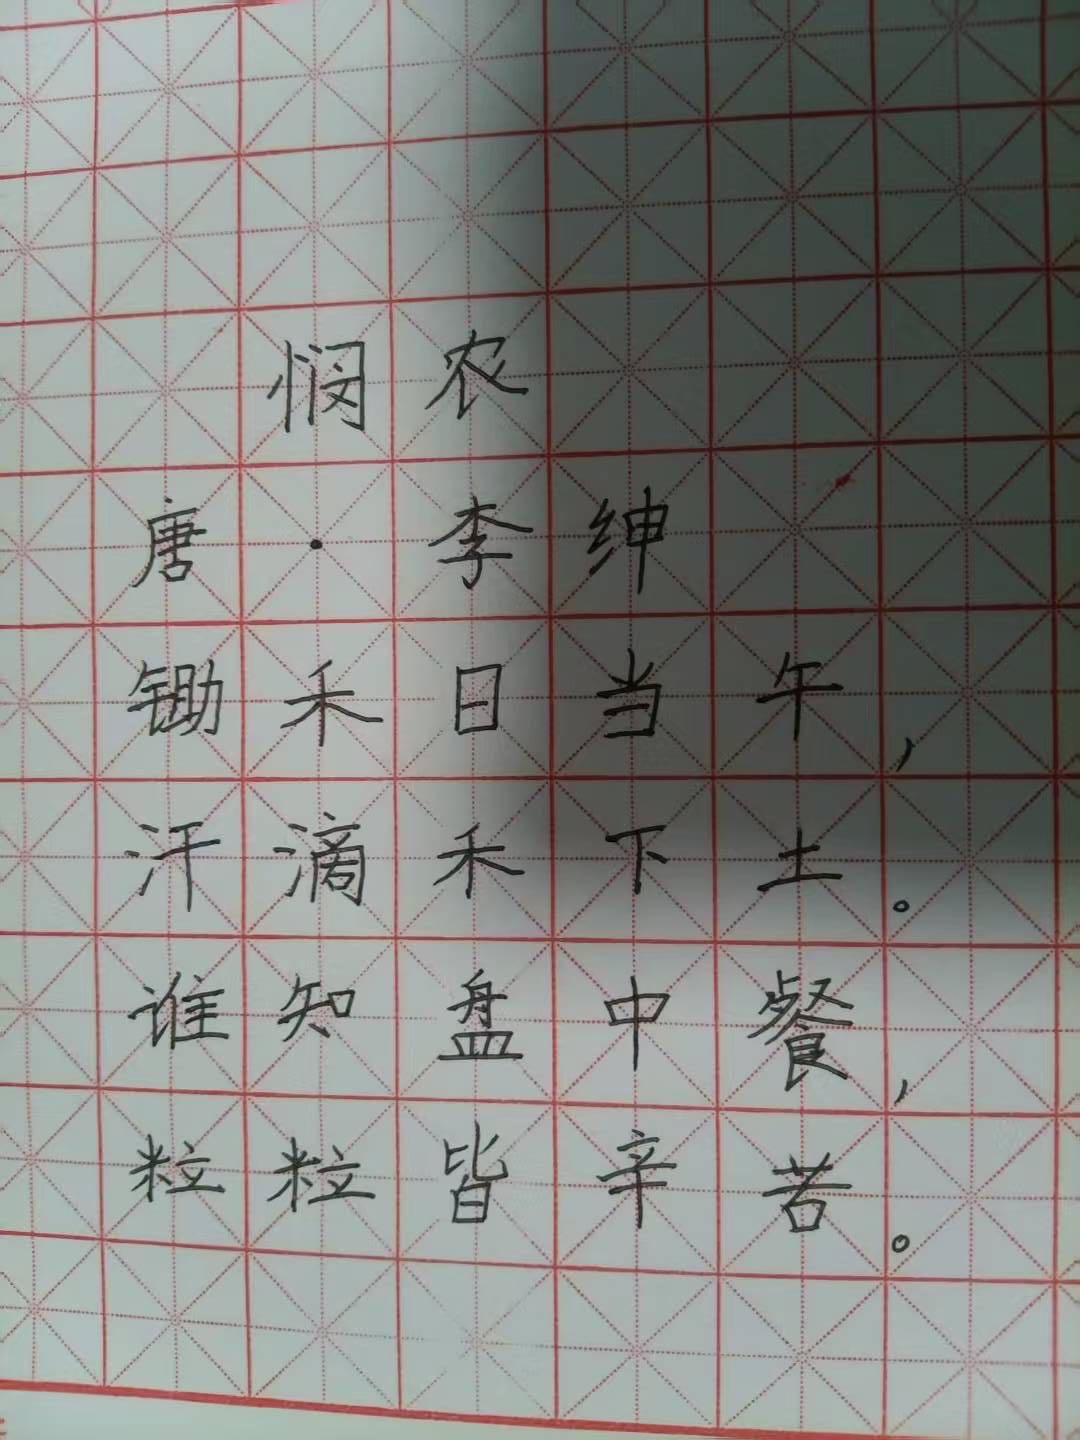 悯农
唐·李绅
锄禾日当午，
汗滴禾下土。
谁知盘中餐，
粒粒皆辛苦。